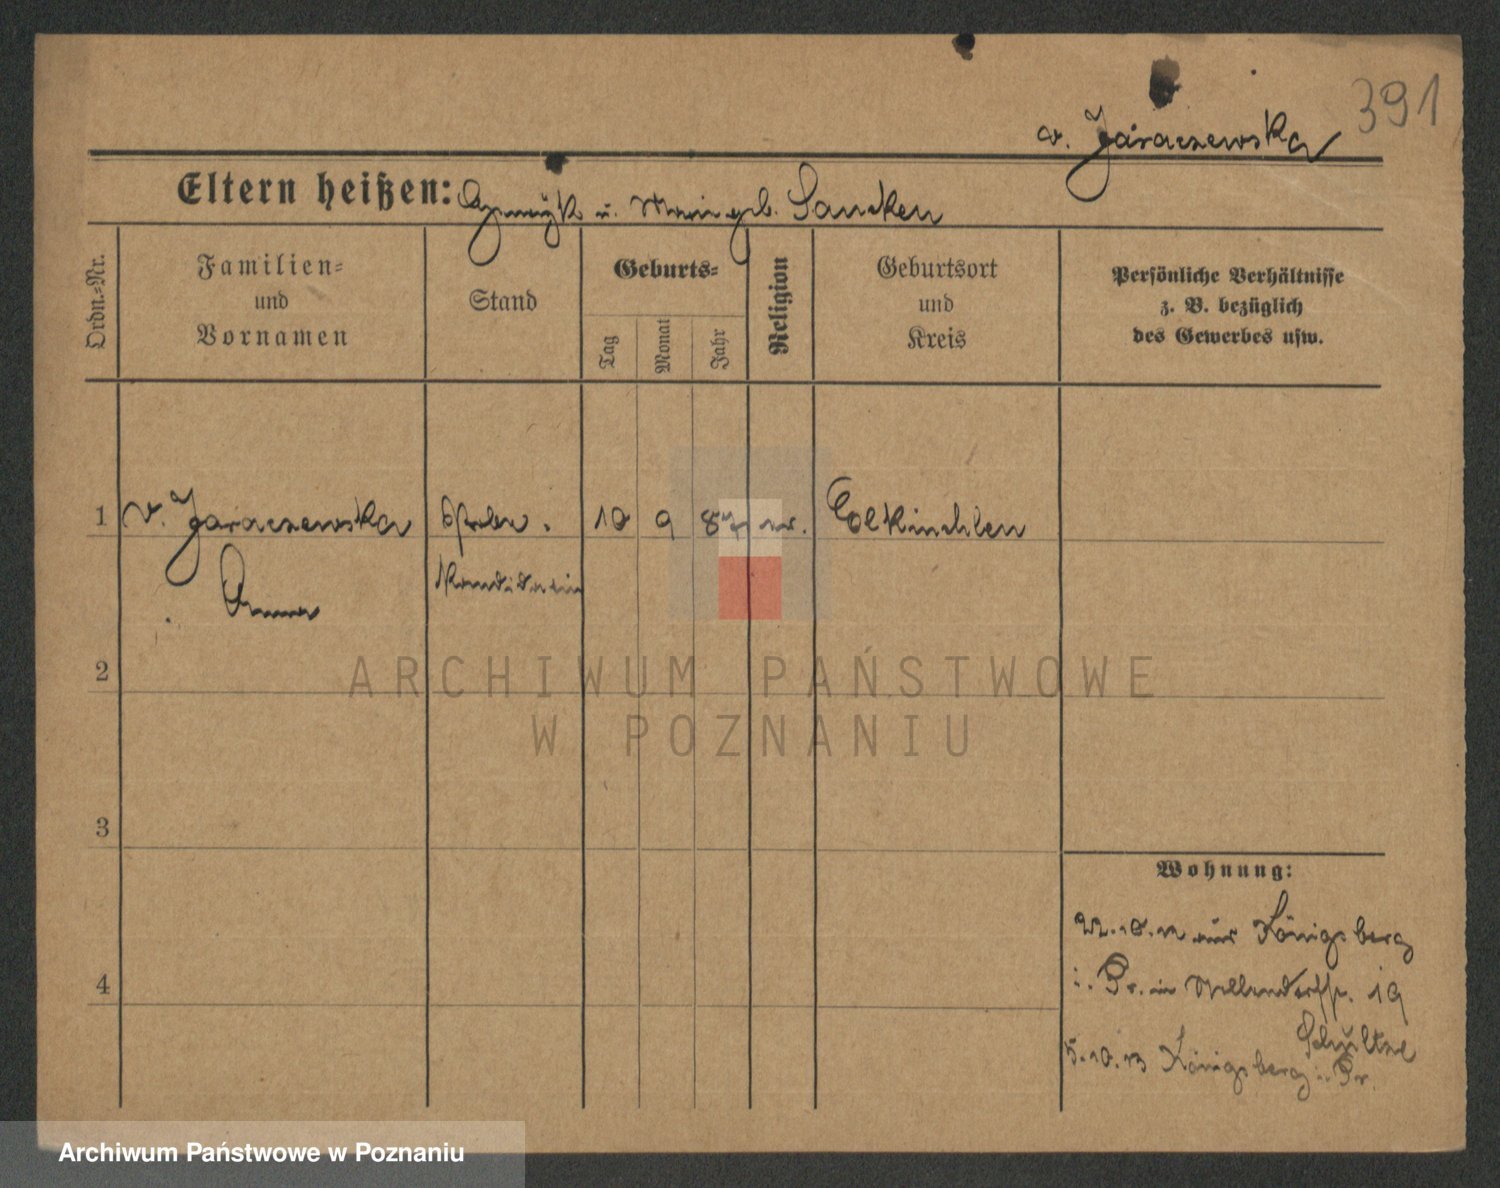 391
v. Jaraczewska
Eltern heißen: u. geb. Saucken
Ordn.=Nr.
Familien=
und
Vornamen
Stand
Geburts=
Tag
Monat
Jahr
Religion
Geburtsort
und
Kreis
Persönliche Verhältnisse
z. B. bezüglich
des Gewerbes usw.
1 v. Jaraczewska 10 9 87
Anna Kandidatin
2
3
4
Wohnung:
aus Königsberg
i. Pr. in 19
Schultze
5.10.13 Königsberg i. Pr.
ARCHIWUM PAŃSTWOWE
W POZNANIU
Archiwum Państwowe w Poznaniu